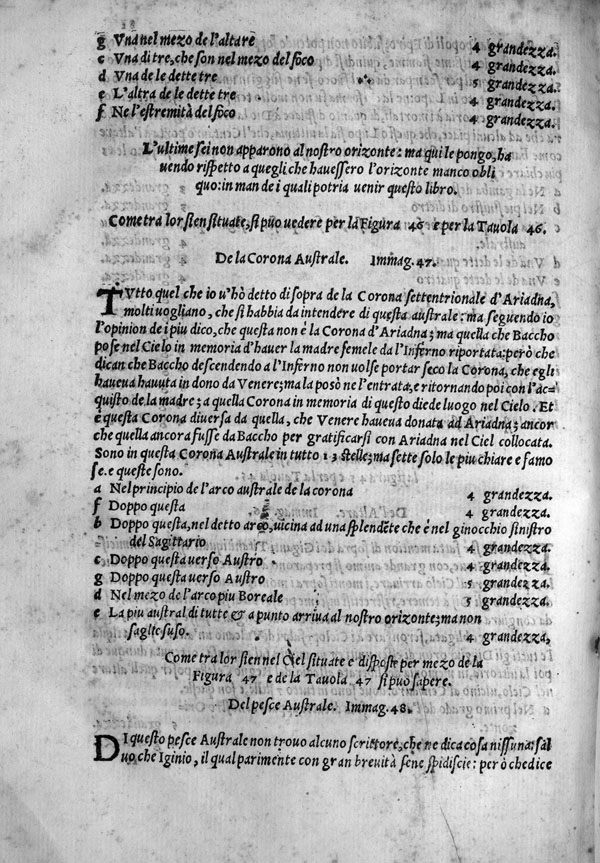 g Vna nel mezo de l'altare 4 grandezza.
c Vna di tre, che son nel mezo del foco 4 grandezza.
d Vna de le dette tre 5 grandezza.
e L'altra de le dette tre 4 grandezza.
f Ne l'estremità del foco 4 grandezza.
L'ultime sei non apparono al nostro orizonte: ma qui le pongo, ha
uendo rispetto a quegli che hauessero l'orizonte manco obli
quo: in man de i quali potria uenir questo libro.
Come tra lor sien situate, si può uedere per la Figura 46 e per la Tauola 46.
De la Corona Australe. Immag. 47.
TVtto quel che io u'hò detto di sopra de la Corona settentrionale d'Ariadna,
molti uogliano, che si habbia da intendere di questa australe: ma seguendo io
l'opinion de i piu dico, che questa non è la Corona d'Ariadna; ma quella che Baccho
pose nel Cielo in memoria d'hauer la madre semele da l'Inferno riportata: però che
dican che Baccho descendendo a l'Inferno non uolse portar seco la Corona, che egli
haueua hauuta in dono da Venere; ma la posò ne l'entrata, e ritornando poi con l'ac-
quisto de la madre; a quella Corona in memoria di questo diede luogo nel Cielo. Et
è questa Corona diuersa da quella, che Venere haueua donata ad Ariadna; ancor
che quella ancora fusse da Baccho per gratificarsi con Ariadna nel Ciel collocata.
Sono in questa Corona Australe in tutto 13 stelle; ma sette solo le piu chiare e famo
se. e queste sono.
a Nel principio de l'arco australe de la corona 4 grandezza.
f Doppo questa 4 grandezza.
b Doppo questa, nel detto arco, uicina ad una splendēte che è nel ginocchio sinistro
del Sagittario 4 grandezza.
c Doppo questa uerso Austro 4 grandezza.
g Doppo questa uerso Austro 5 grandezza.
d Nel mezo de l'arco piu Boreale 5 grandezza.
e La piu austral di tutte & a punto arriua al nostro orizonte; ma non
saglie suso. 4 grandezza,
Come tra lor sien nel Ciel situate e disposte per mezo de la
Figura 47 e de la Tauola 47 si può sapere.
Del pesce Australe. Immag. 48.
DI questo pesce Australe non trouo alcuno scrittore, che ne dica cosa nissuna: sal
uo che Iginio, il qual parimente con gran breuità sene spidiscie: però che dice